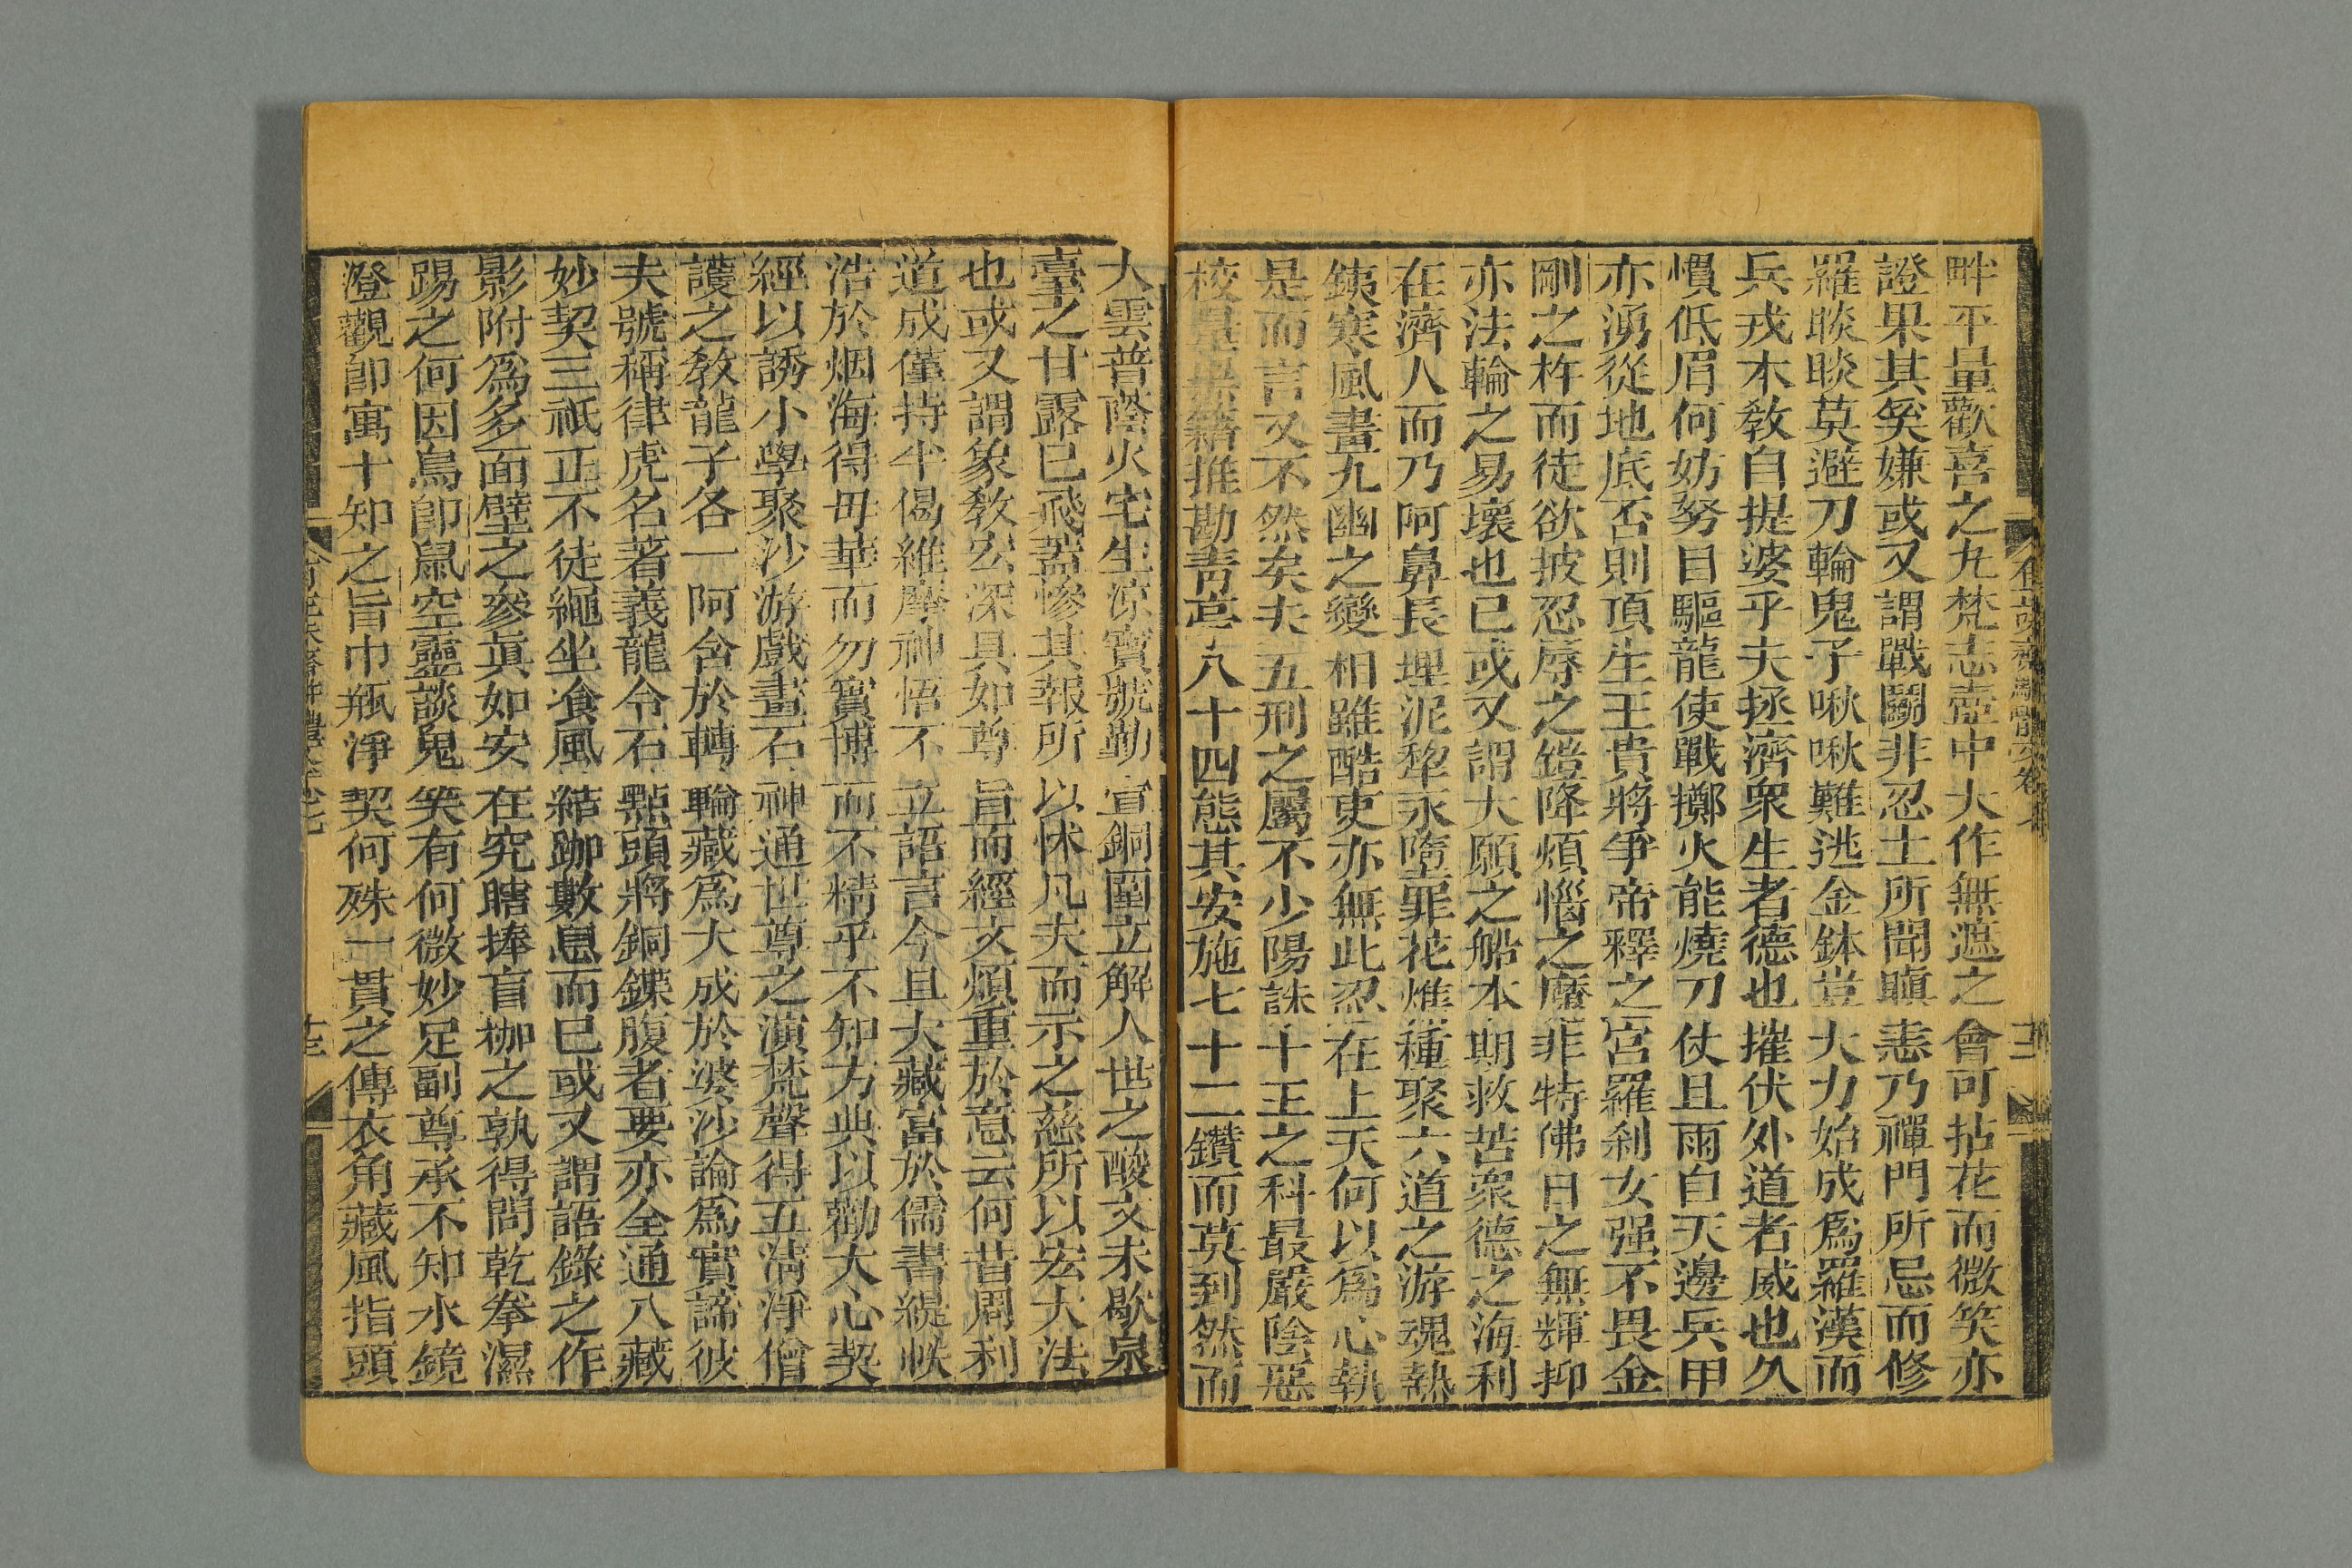 畔平量歡喜之九梵志壺中大作無遮之會可拈花而微笑亦
證果其奚嫌或又謂戰鬭非忍土所聞瞋恚乃禪門所忌而修
羅睒睒莫避刀輪鬼子啾啾難逃金鉢豈大力始成爲羅漢而
兵戎木敎自提婆乎夫拯濟衆生者德也摧伏外道者威也久
慣低眉何妨努目驅龍使戰擲火能燒刀仗且雨自天邊兵甲
亦湧從地底否則頂生王貴將爭帝釋之宮羅刹女强不畏金
剛之杵而徒欲披忍辱之鎧降煩惱之魔非特佛日之無輝抑
亦法輪之易壞也已或又謂大願之船本期救苦衆德之海利
在濟人而乃阿鼻長埋泥犂永墮罪花燋種聚六道之游魂熱
鐵寒風畫九幽之變相雖酷吏亦無此忍在上天何以爲心執
是而言又不然矣夫五刑之屬不少陽誅十王之科最嚴陰惡
校量黑籍推勘靑八十四態其安施七十二鑽而莫到然而
大雲普蔭火宅生涼寶號勤宣銅圍立解人世之酸文未歇泉
臺之甘露已飛蓋慘其報所以怵凡夫而示之慈所以宏大法
也或又謂象敎宏深具如尊旨而經文煩重於意云何昔周利
道成僅持半偈維摩神悟不立語言今且大藏富於儒書緹帙
浩於烟海得毋華而勿實博而不精乎不知方典以勸大心契
經以誘小學聚沙游戲畫石神通世尊之演梵聲得五淸淨僧
護之敎龍子各一阿含於轉輪藏爲大成於婆沙論爲實諦彼
夫號稱律虎名著義龍令石點頭將銅鍱腹者要亦全通八藏
妙契三祇正不徒繩坐飡風結跏數息而已或又謂語錄之作
影附爲多面壁之參眞如安在究瞎捧盲枷之孰得問乾拳濕
踢之何因鳥卽鼠空靈談鬼笑有何微妙足副尊承不知水鏡
澄觀卽寓十知之旨巾瓶淨契何殊一貫之傳衣角藏風指頭